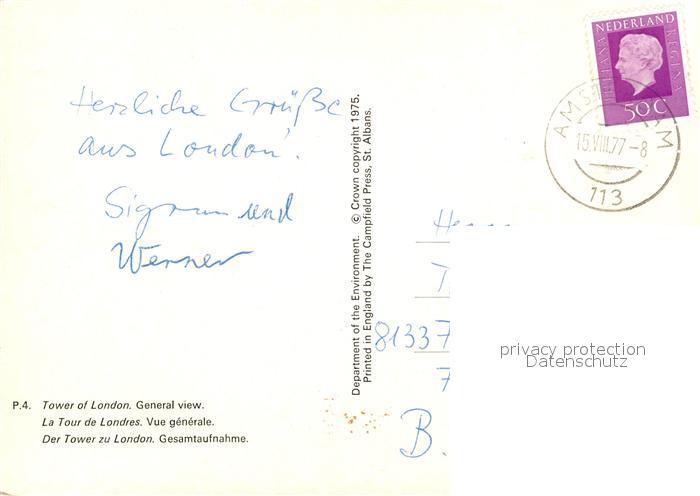 NEDERLAND
JULIANA REGINA
50c
AMSTERDAM
15.VIII.77-8
113
Herzliche Grüße
aus London.
Sigrun und
Werner
Department of the Environment. © Crown copyright 1975.
Printed in England by The Campfield Press, St. Albans.
8133
B.
privacy protection
Datenschutz
P.4. Tower of London. General view.
La Tour de Londres. Vue générale.
Der Tower zu London. Gesamtaufnahme.